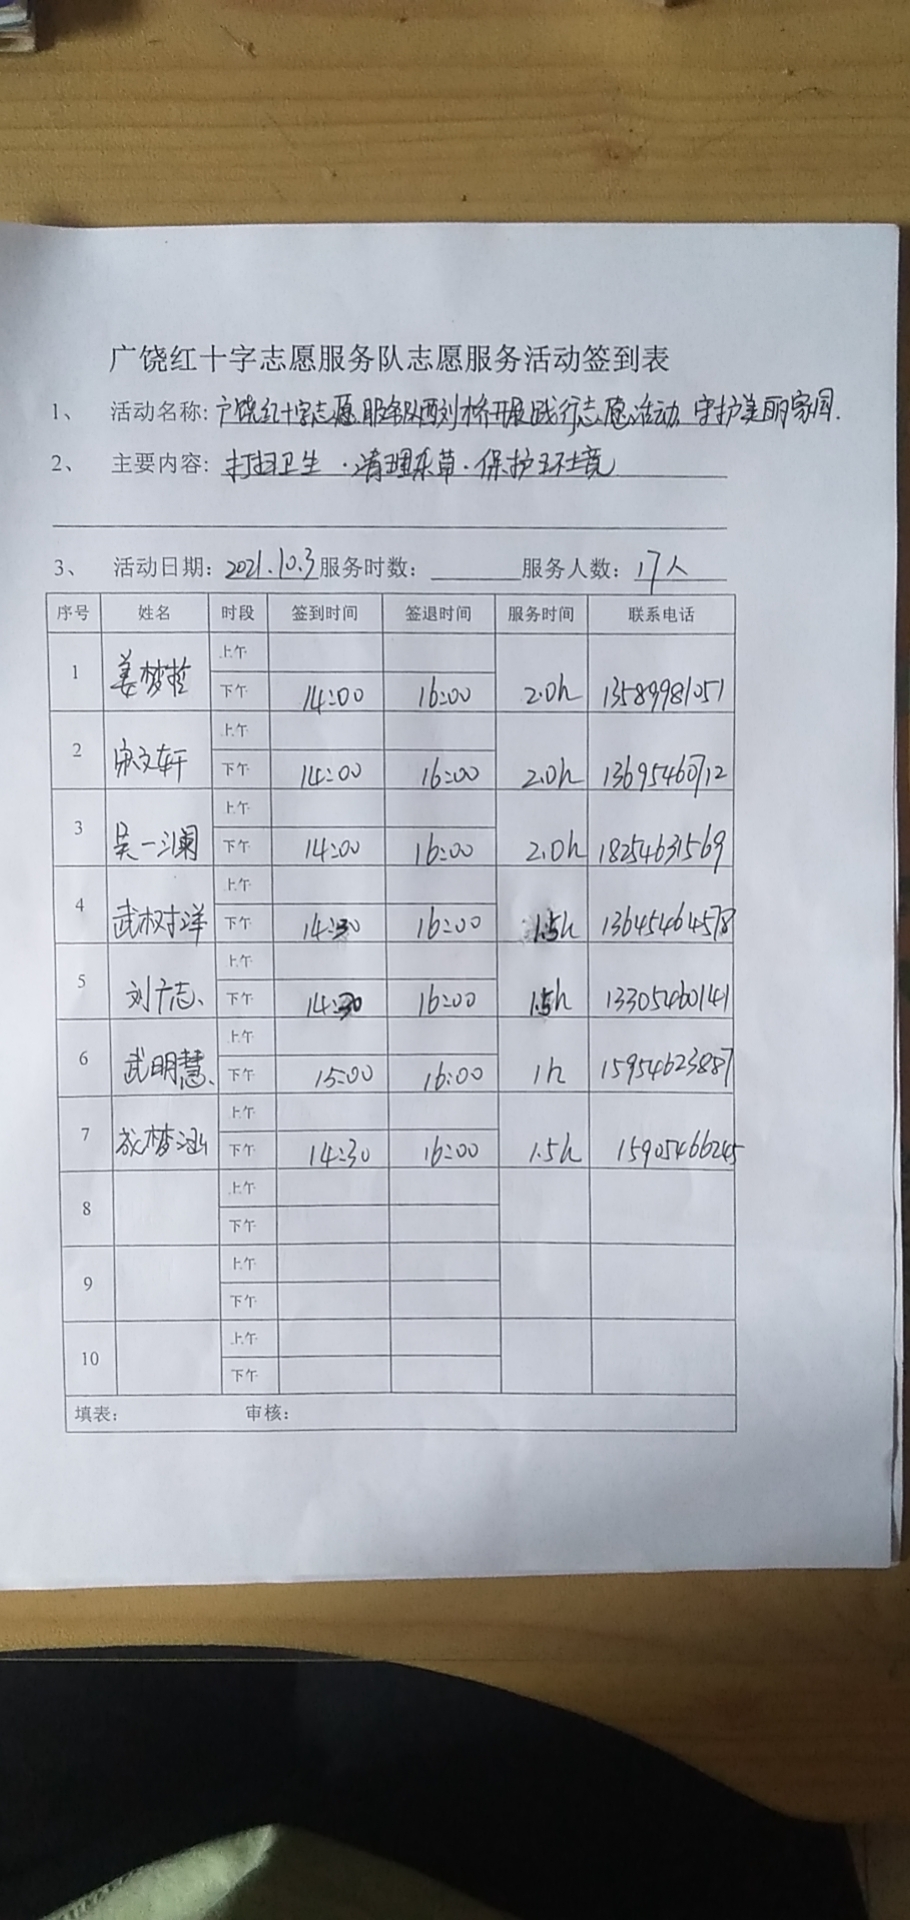 广饶红十字志愿服务队志愿服务活动签到表
1、 活动名称: 广饶红十字志愿服务队西刘桥开展践行志愿活动,守护美丽家园.
2、 主要内容: 打扫卫生·清理杂草·保护环境
3、 活动日期: 2021.10.3 服务时数: 服务人数: 17人
序号 姓名 时段 签到时间 签退时间 服务时间 联系电话
上午
1 姜梦
下午 14:00 16:00 2.0h 13589981051
上午
2 宋文轩
下午 14:00 16:00 2.0h 13695460712
上午
3 吴一澜
下午 14:00 16:00 2.0h 18254631569
上午
4 武树洋
下午 14:30 16:00 1.5h 13645464578
上午
5 刘广志
下午 14:30 16:00 1.5h 13305460141
上午
6 武明慧
下午 15:00 16:00 1h 15954623887
上午
7 成梦涵
下午 14:30 16:00 1.5h 15905466245
上午
8
下午
上午
9
下午
上午
10
下午
填表: 审核: